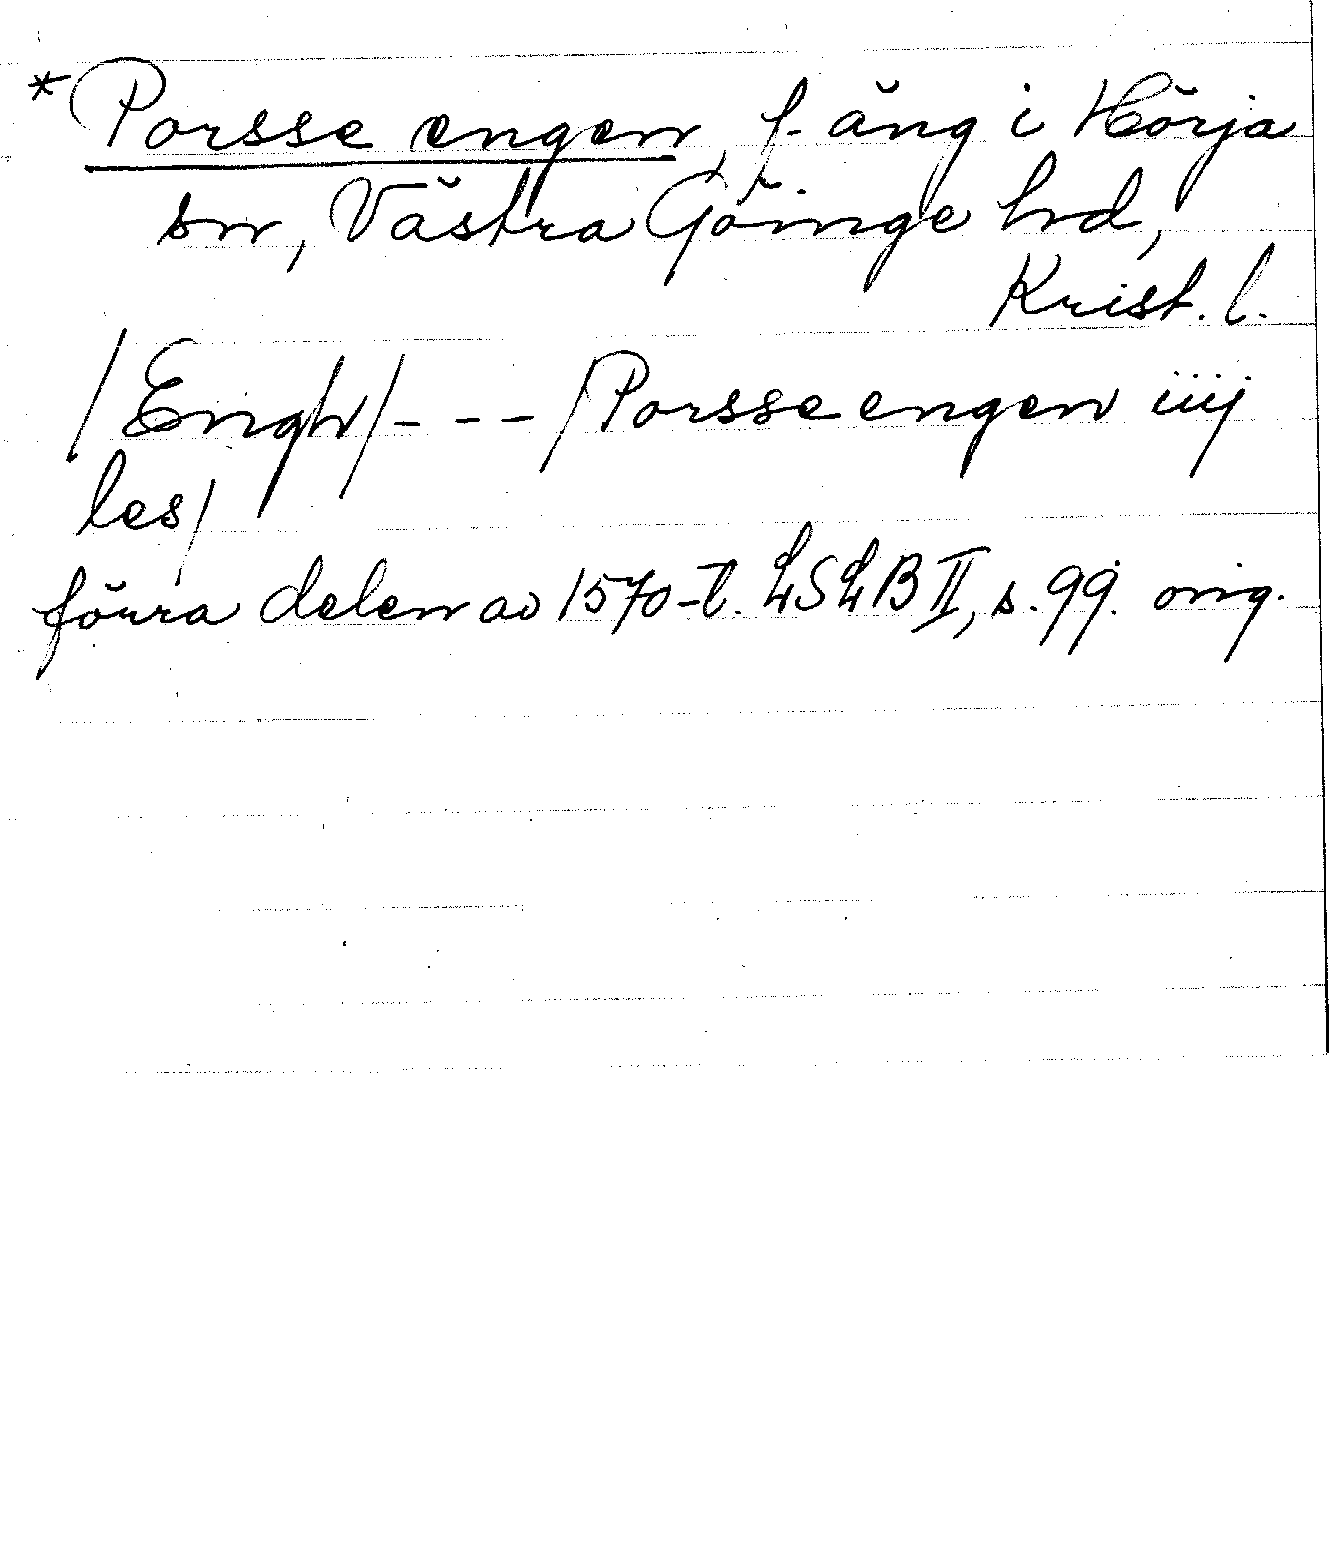 *Porsse engen, f. äng i Hörja
sn, Västra Göinge hd,
Krist. l.
/Engh/- - - /Porsse engen iiij
les/
förra delen av 1570-t. LSLB II, s. 99. orig.